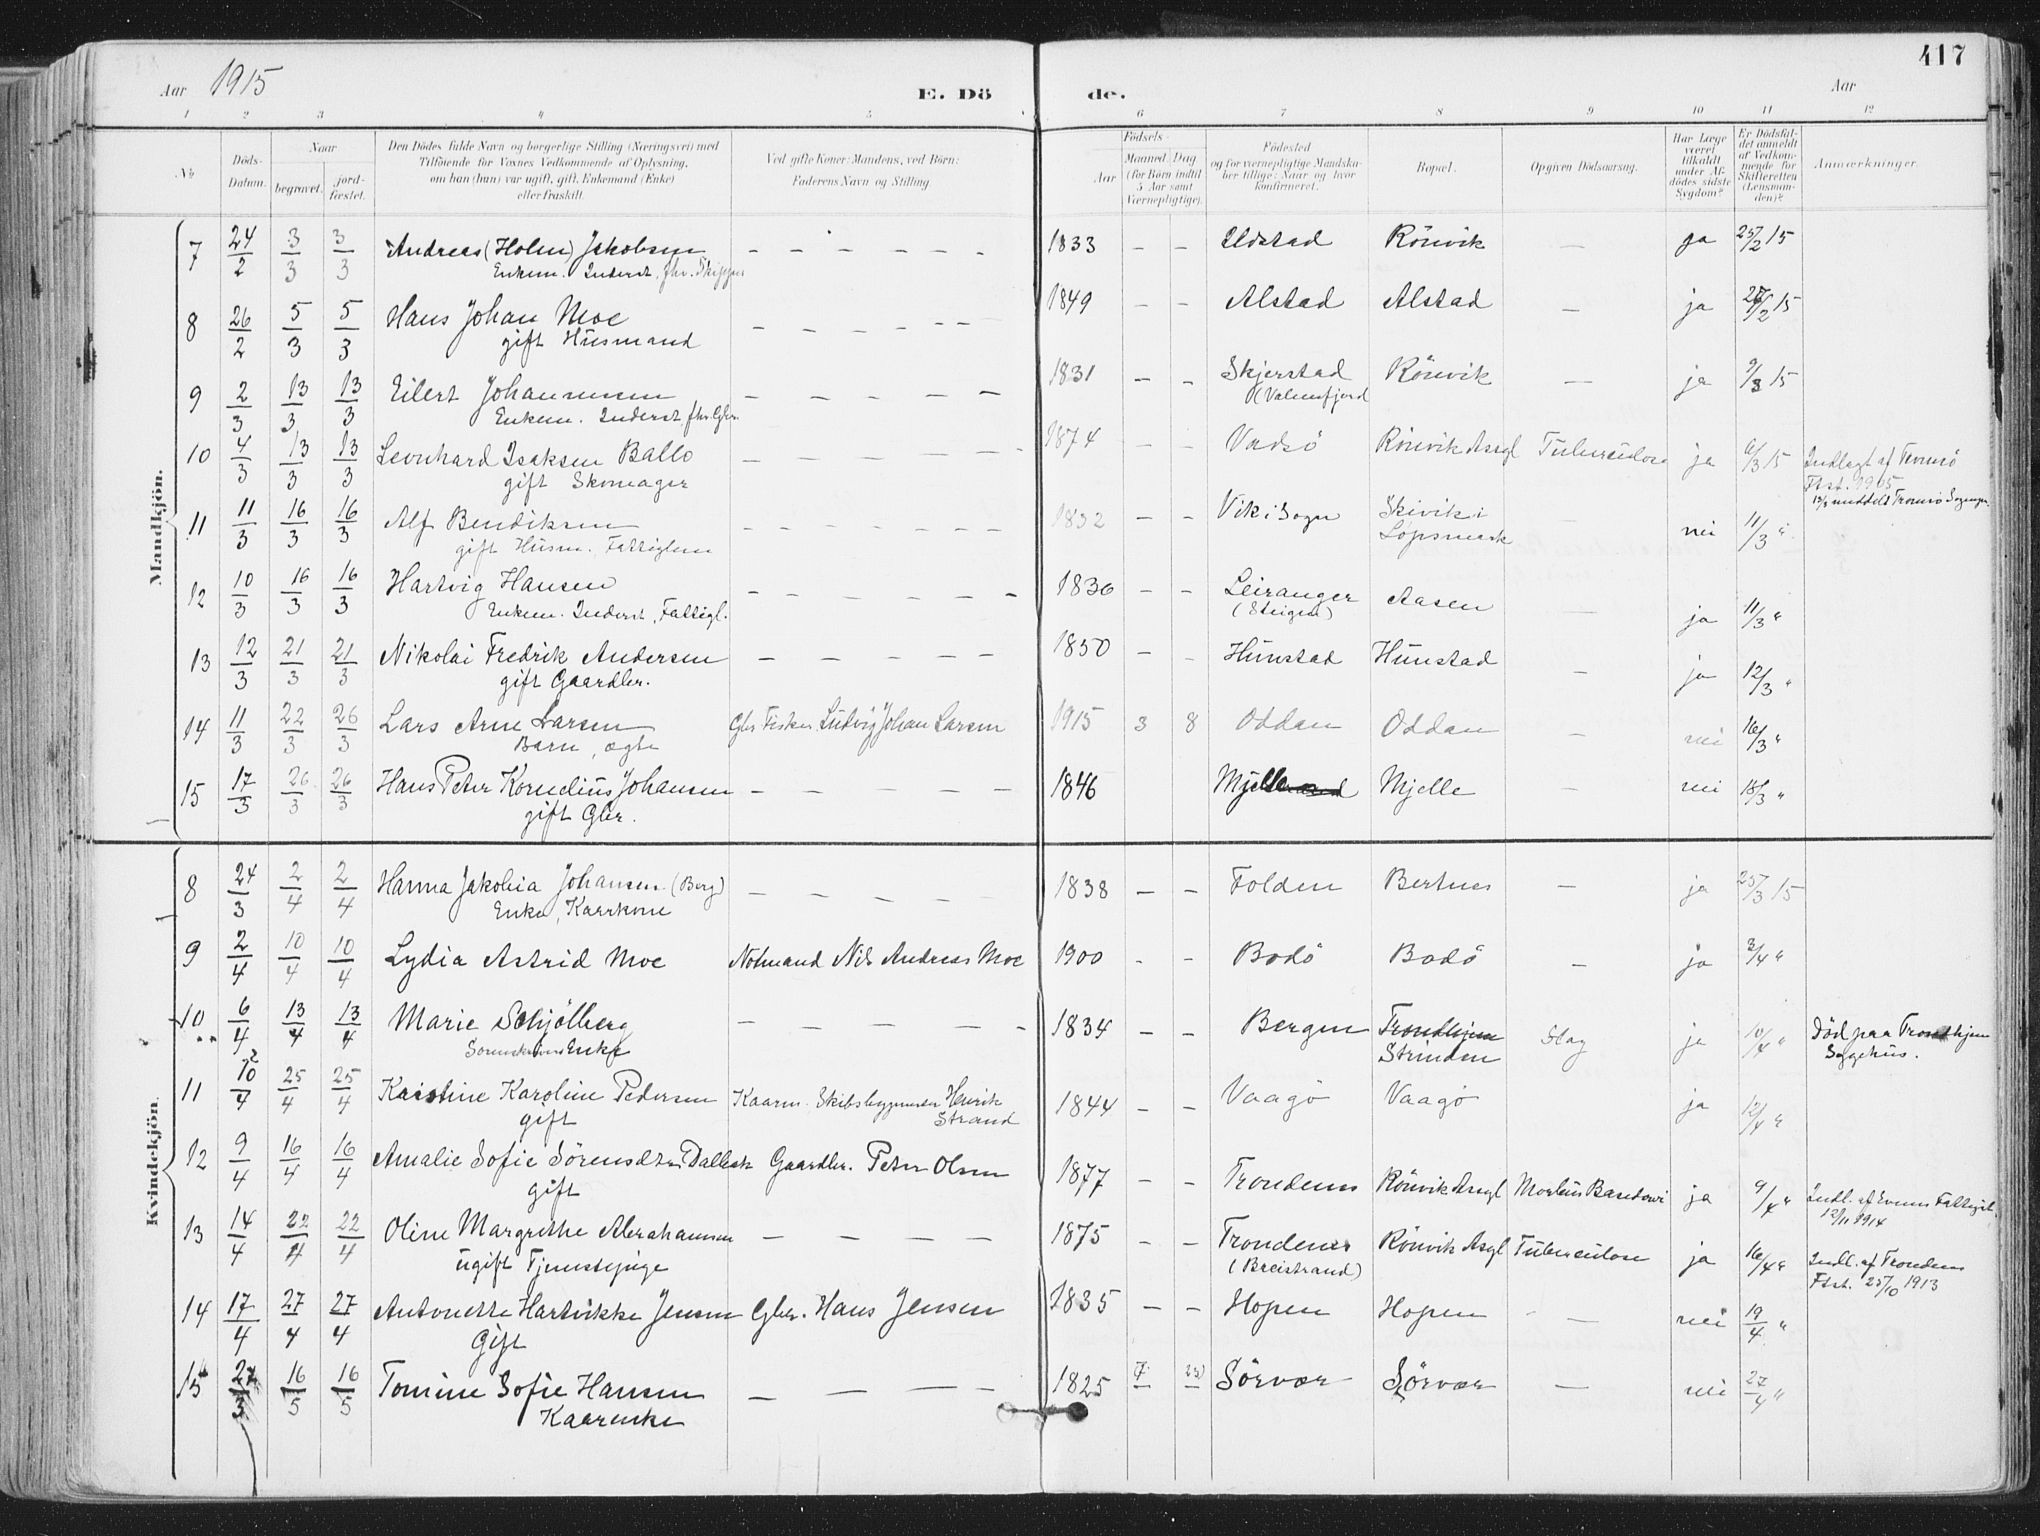 417
Aar 1915
E. Dö de.
Aar
1 2 3 4 5 6 7 8 9 10 11 12
№
Döds-Datum.
Naar
begravet.
jord-fæstet.
Den Dödes fulde Navn og borgerlige Stilling (Næringsvei) med
Tilföiende for Voxnes Vedkommende af Oplysning,
om han (hun) var ugift, gift, Enkemand (Enke)
eller fraskilt.
Ved gifte Koner: Mandens, ved Börn:
Faderens Navn og Stilling.
Födsels-
Aar
Maaned Dag
(for Börn indtil
5 Aar samt
Værnepligtige).
Födested
og for værnepligtige Mandska-
ber tillige: Naar og hvor
konfirmeret.
Bopæl.
Opgiven Dödsaarsag.
Har Læge
været
tilkaldt
under Af-
dödes sidste
Sygdom?
Er Dödsfal-
det anmeldt
af Vedkom-
mende for
Skifteretten
(Lensman-
den)?
Anmærkninger.
Mandkjön.
7 24/2 3/3 3/3 Andreas (Holm) Jakobsen – – – – – 1833 – – Ildstad Rönvik – ja 25/2 15
Enkem. Inderst, fhv. Skipper
8 26/2 5/3 5/3 Hans Johan Moe – – – – – – 1849 – – Alstad Alstad – ja 27/2 15
gift Husmand
9 2/3 13/3 13/3 Eilert Johannessen – – – – – 1831 – – Skjerstad Rönvik – ja 9/3 15
Enkem. Inderst fhv. Gbr. (Valnesfjord
10 4/3 13/3 13/3 Leonhard Isaksen Ballo – – – – – – 1874 – – Vadsö Rönvik Asyl Tuberculose ja 6/3 15 Indlagt af Tromsö
gift Skomager Ftst. 1905
12/3 meddelt Tromsö Sognepr.
11 11/3 16/3 16/3 Alf Bendiksen – – – – – – 1832 – – Vik i Sogn Skivik i – nei 11/3 "
gift Husm. Fattiglem Löpsmark
12 10/3 16/3 16/3 Hartvig Hansen – – – – – – 1836 – – Leiranger Aasen – ja 11/3 "
Enkem. Inderst, Fattigl. (Steigen)
13 12/3 21/3 21/3 Nikolai Fredrik Andersen – – – – – 1850 – – Hunstad Hunstad – ja 12/3 "
gift Gaardbr.
14 11/3 22/3 26/3 Lars Arne Larsen Gbr Fisker Ludvig Johan Larsen 1915 3 8 Oddan Oddan – nei 16/3 "
Barn, ægte
15 17/3 26/3 26/3 Hans Peter Kornelius Johansen – – – – – 1846 Mjelle Mjelle – nei 18/3 "
gift Gbr.
Kvindekjön.
8 24/3 2/4 2/4 Hanna Jakobia Johansen (Berg) – – – – – 1838 – – Folden Bertnes – ja 25/3 15
Enke, Kaarkone
9 2/4 10/4 10/4 Lydia Astrid Moe Notmand Nils Andreas Moe 1900 - - Bodö Bodö – ja 3/4 "
10 6/4 13/4 13/4 Marie Schjölberg – – – – - 1834 – – Bergen Trondhjem Slag ja 10/4 " Död paa Trondhjem
Sorenskrivers Enke Strinden Sygehus.
11 10/4 25/4 25/4 Kristine Karoline Pedersen Kaarm. Skibsbygmester Henrik 1844 – – Vaagö Vaagö ja 12/4 "
gift Strand
12 9/4 16/4 16/4 Amalie Sofie Sörensdtr Gaardbr. Peter Olsen 1877 – – Trondenes Rönvik Asyl Morbus Basedowi ja 9/4 " Indl. af Evenes Fattigst.
gift 12/11 1914
13 14/4 22/4 22/4 Oline Margrethe Abrahamsen – – – – 1875 – – Trondenes Rönvik Asyl Tuberculose ja 16/4 " Indl. af Trondenes
ugift Tjenestepige (Breistrand) Ftst. 25/10 1913
14 17/4 27/4 27/4 Antonette Hartvikke Jensen Gbr. Hans Jensen 1835 – – Hopen Hopen – nei 19/4 "
Gift
15 16/5 16/5 Tomine Sofie Hansen – – – – 1825 7 Sörvær Sörvær – nei 27/4 "
Kaarenke